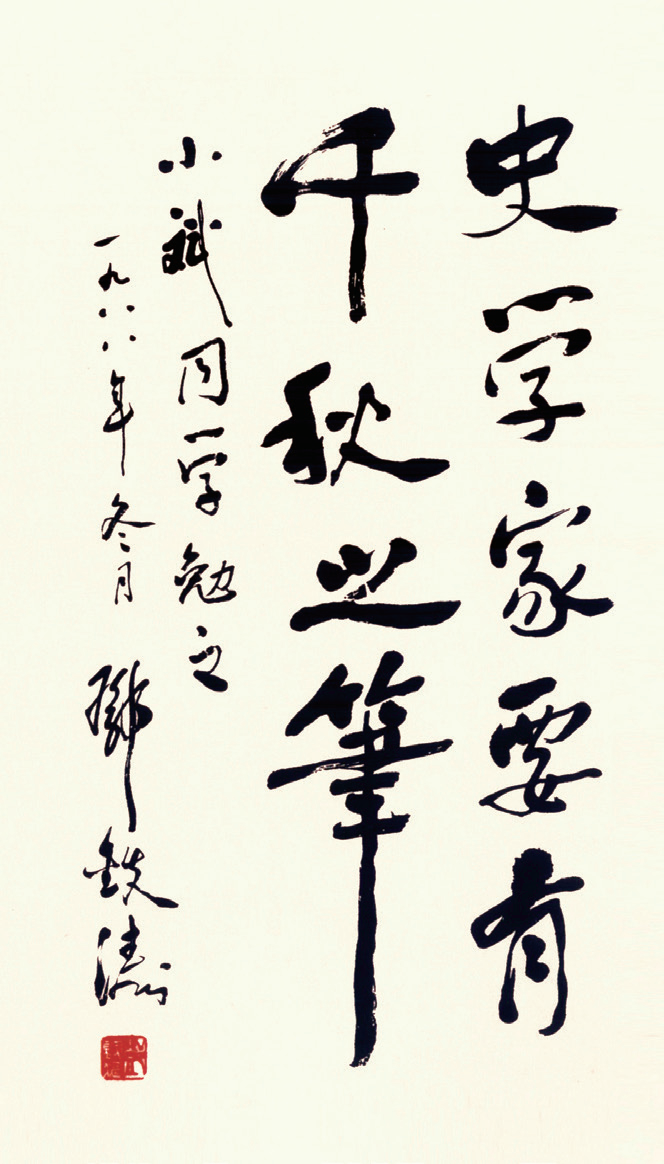 史学家要有
千秋之筆
小斌同学勉之
一九八八年冬月
鄧鉄涛